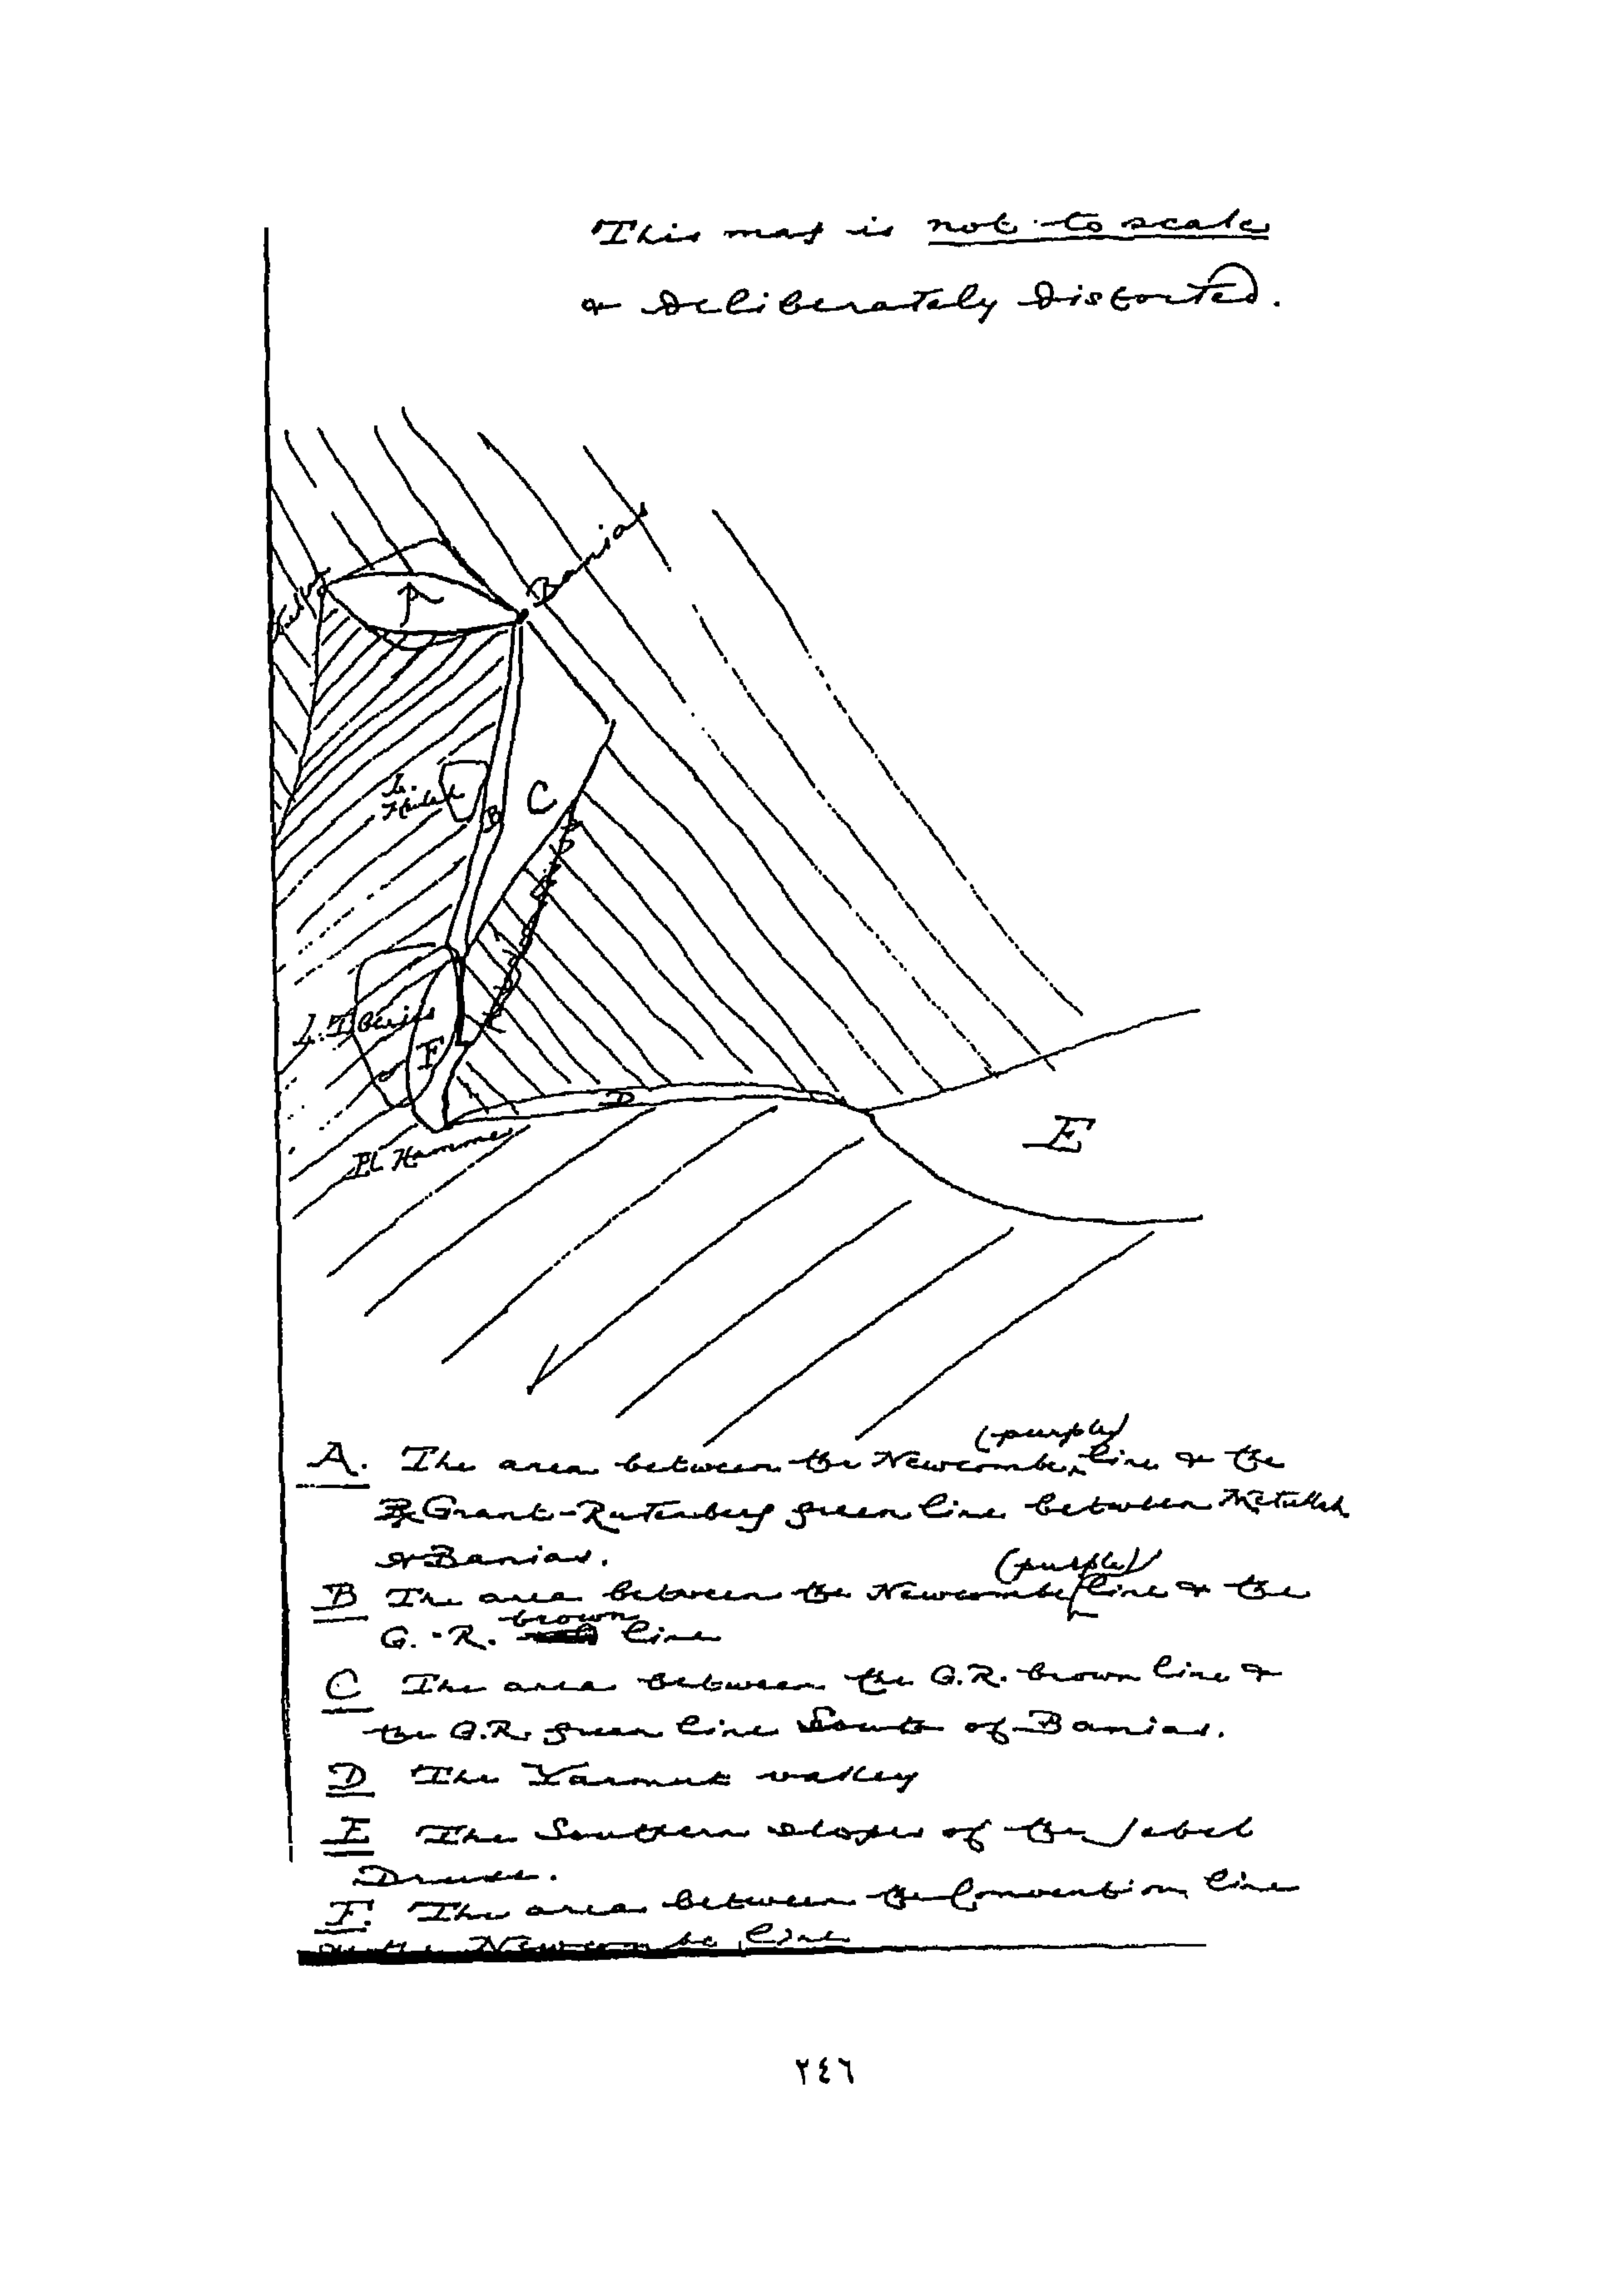 This map is not to scale
& deliberately distorted.
Banias
A
L.
Huleh
B
C
L. Tiberias
F
D
E
El Hamme
(purple)
A. The area between the Newcombe line & the
Grant-Rutenberg green line between Metullah
& Banias.
(purple)
B The area between the Newcombe line & the
brown
G.-R. line
C The area between the G.R. brown line &
the G.R. green line South of Banias.
D The Yarmuk valley
E The Southern slopes of the Jebel
Druse.
F. The area between the Convention line
& the Newcombe line
٢٤٦